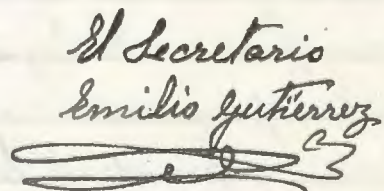 El Secretario
Emilio Gutiérrez